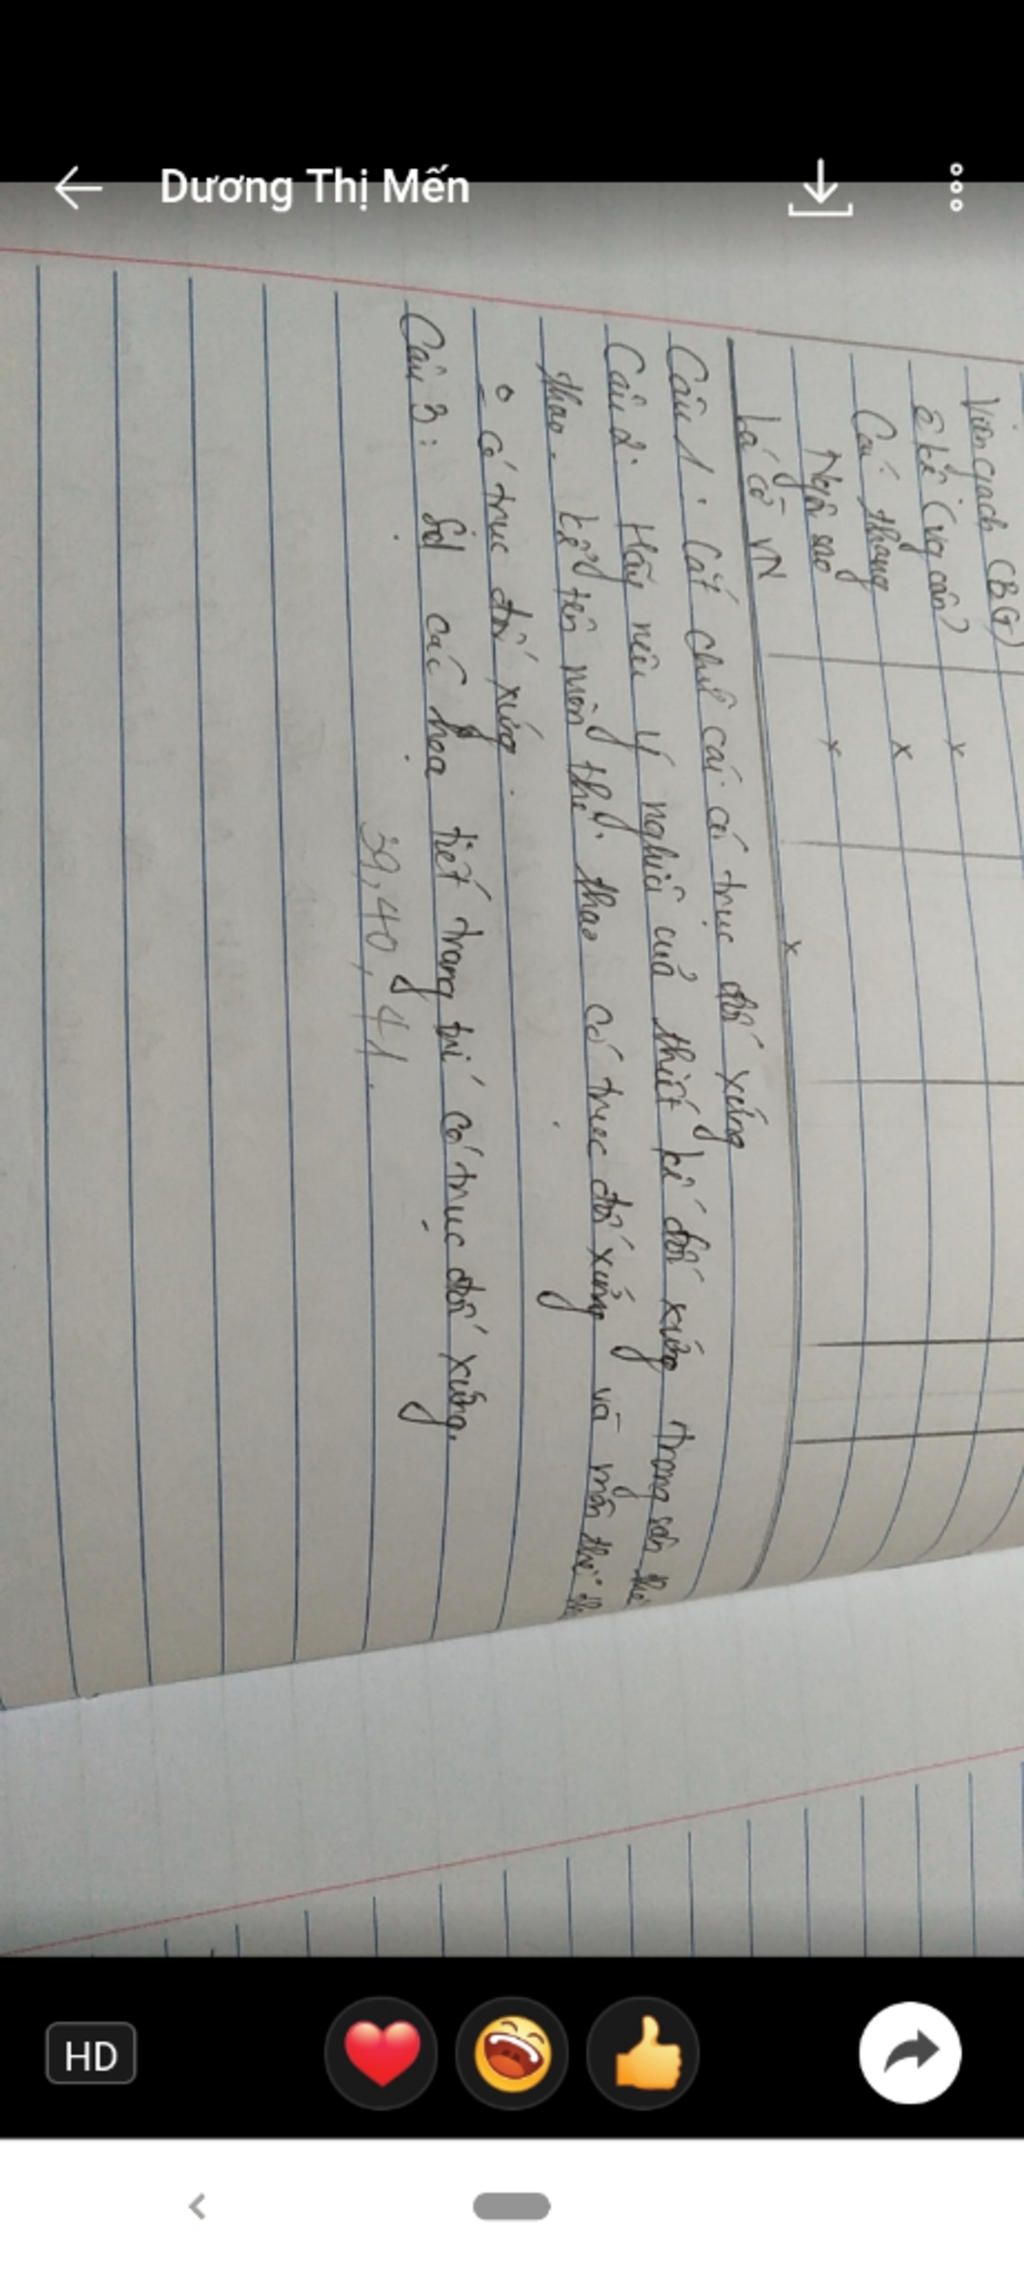 Dương Thị Mến
Viên gạch (BG)
Ê ke (vg cân)
Cái thang
x
Ngôi sao
x
Lá cờ VN
x
x
Câu 1: Cắt chữ cái có trục đối xứng
Câu 2: Hãy nêu ý nghĩa của thiết kế đối xứng trong sân thể
thao. kể tên môn thể thao có trục đối xứng và môn thể
có trục đối xứng.
Câu 3: Sd các họa tiết trang trí có trục đối xứng.
39, 40, 41.
HD